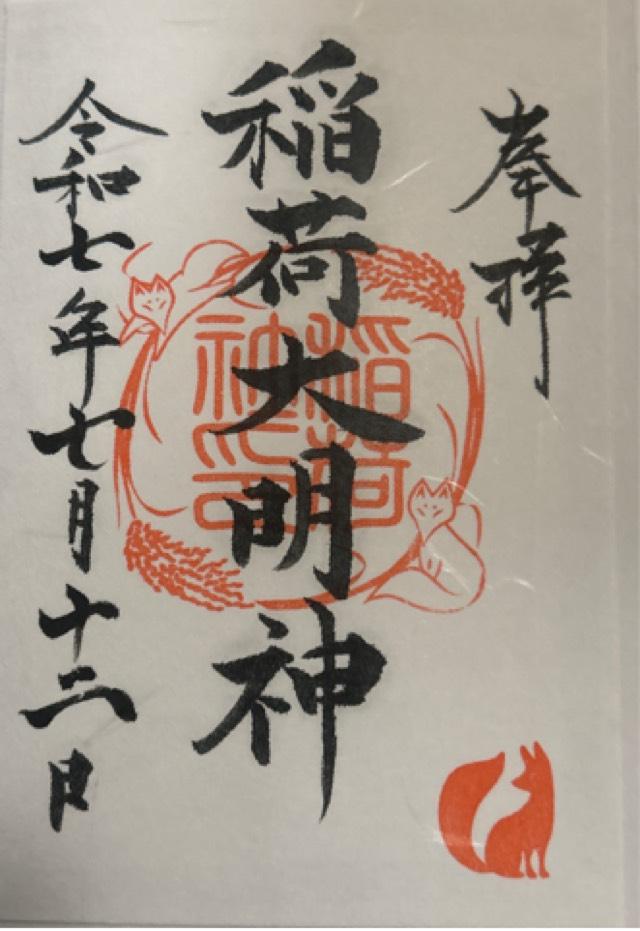 奉拝
稲荷大明神
稲荷
神印
令和七年七月十二日